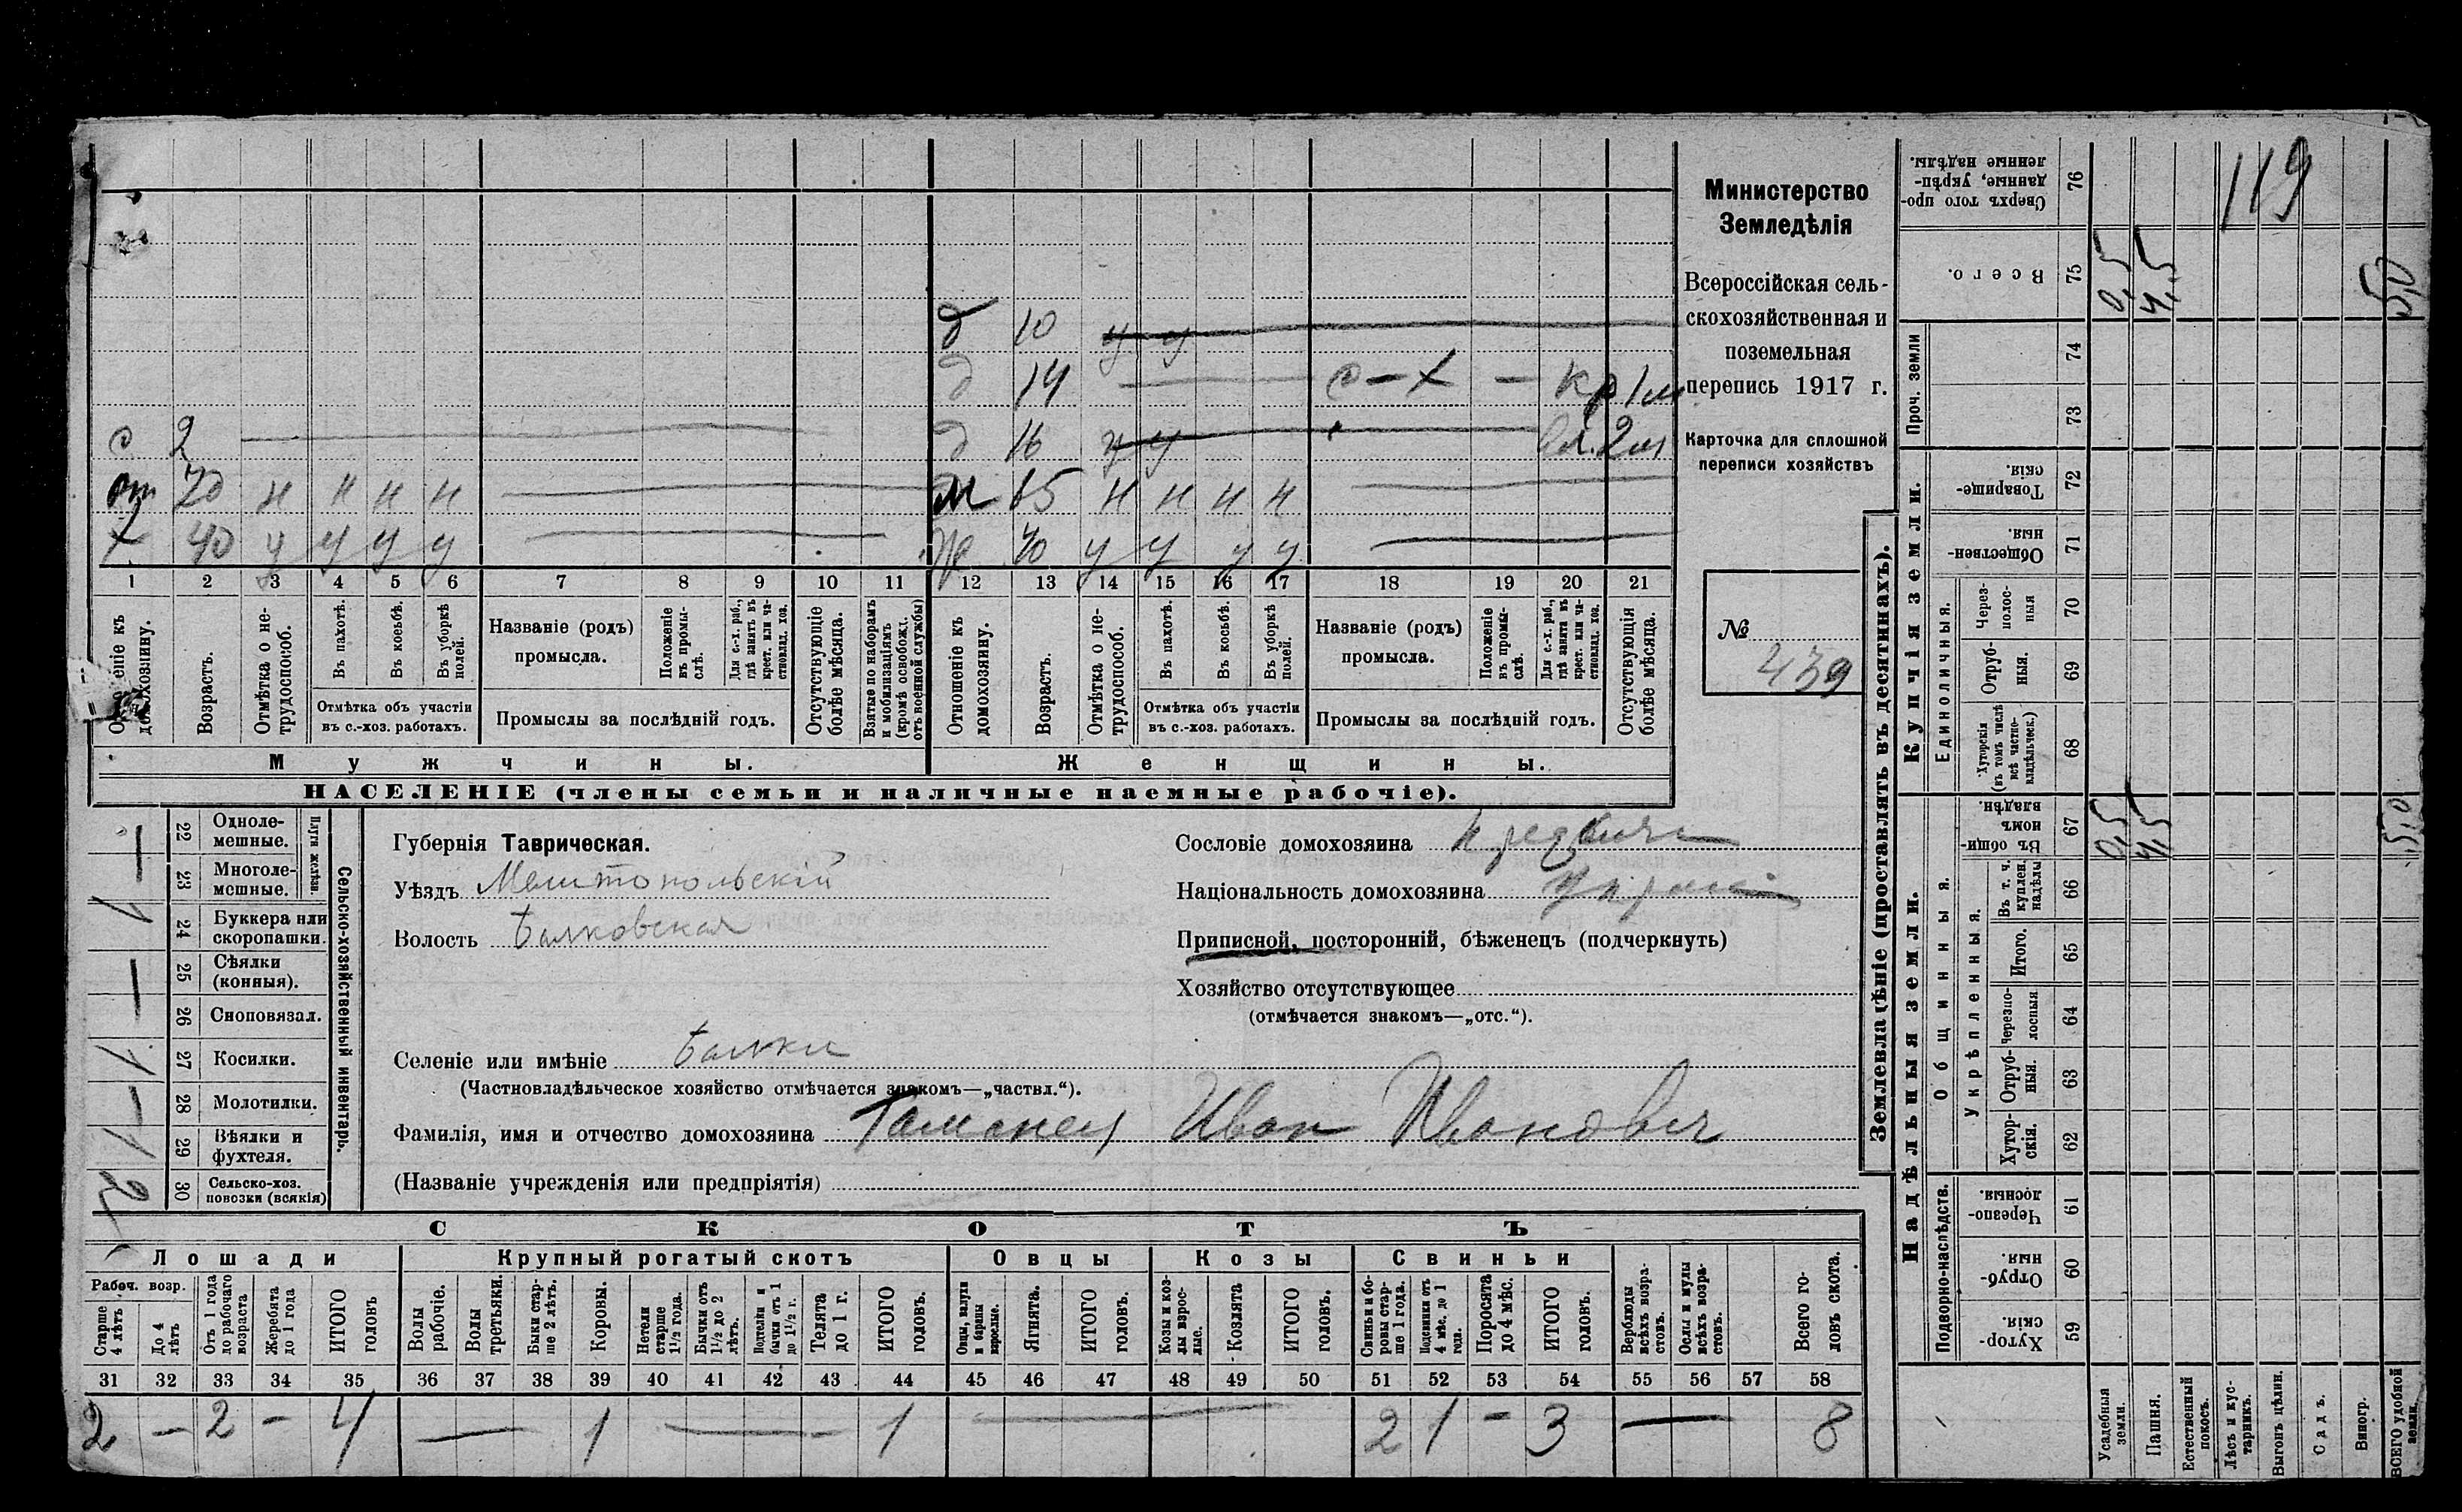 Министерство
Земледѣлія
Всероссійская сель-
скохозяйственная и
поземельная
перепись 1917 г.
Карточка для сплошной
переписи хозяйствъ
№
439
д 10 у у
д 14 с-х кр 1 м
с 2
д 16 у у 2 м
от 70 н н н н
м 65 н н н н
х 40 у у у у
ж 40 у у у у
1 2 3 4 5 6 7 8 9 10 11 12 13 14 15 16 17 18 19 20 21
домохозяину.
Возрастъ.
Отмѣтка о не-
трудоспособ.
Въ пахотѣ.
Въ косьбѣ.
Въ уборкѣ
полей.
Отмѣтка объ участіи
въ с.-хоз. работахъ.
Названіе (родъ)
промысла.
Положеніе
въ промы-
слѣ.
Для с.-х. раб.,
гдѣ занятъ въ
крест. или ча-
стновлад. хоз.
Промыслы за послѣдній годъ.
Отсутствующіе
болѣе мѣсяца.
Взятые по наборамъ
и мобилизаціямъ
(кромѣ освобожд.
отъ военной службы)
Отношеніе къ
домохозяину.
Возрастъ.
Отмѣтка о не-
трудоспособ.
Въ пахотѣ.
Въ косьбѣ.
Въ уборкѣ
полей.
Отмѣтка объ участіи
въ с.-хоз. работахъ.
Названіе (родъ)
промысла.
Положеніе
въ промы-
слѣ.
Для с.-х. раб.,
гдѣ занята въ
крест. или ча-
стновлад. хоз.
Промыслы за послѣдній годъ.
Отсутствующія
болѣе мѣсяца.
Мужчины.
Женщины.
НАСЕЛЕНІЕ (члены семьи и наличные наемные рабочіе).
22 Одноле-
мешные.
23 Многоле-
мешные.
Плуги желѣзн.
24 Буккера или
скоропашки.
1
25 Сѣялки
(конныя).
26 Сноповязал.
27 Косилки.
1
28 Молотилки.
29 Вѣялки и
фухтеля.
1
30 Сельско-хоз.
повозки (всякія)
2
Сельско-хозяйственный инвентарь.
Губернія Таврическая.
Уѣздъ Мелитопольскій
Волость Балковская
Селеніе или имѣніе Балки
(Частновладѣльческое хозяйство отмѣчается знакомъ—„частвл.“).
Фамилія, имя и отчество домохозяина Таманец Иван Иванович
(Названіе учрежденія или предпріятія)
Сословіе домохозяина
Національность домохозяина
Приписной, посторонній, бѣженецъ (подчеркнуть)
Хозяйство отсутствующее
(отмѣчается знакомъ—„отс.“).
СКОТЪ
Лошади
Крупный рогатый скотъ
Овцы
Козы
Свиньи
Рабоч. возр.
Старше
4 лѣтъ
До 4
лѣтъ
Отъ 1 года
до рабочаго
возраста
Жеребята
до 1 года
ИТОГО
головъ
Волы
рабочіе.
Волы
третьяки.
Быки стар-
ше 2 лѣтъ.
Коровы.
Нетели
старше
1½ года.
Бычки отъ
1½ до 2
лѣтъ.
Подтелки и
бычки отъ 1
до 1½ г.
Телята
до 1 г.
ИТОГО
головъ.
Овцы, валухи
и бараны
взрослые.
Ягнята.
ИТОГО
головъ.
Козы и коз-
лы взрос-
лые.
Козлята
ИТОГО
головъ.
Свиньи и бо-
ровы стар-
ше 1 года.
Подсвинки отъ
4 мѣс. до 1
года.
Поросята
до 4 мѣс.
ИТОГО
головъ.
Верблюды
всѣхъ возра-
стовъ.
Ослы и мулы
всѣхъ возра-
стовъ.
Всего го-
ловъ скота.
31 32 33 34 35 36 37 38 39 40 41 42 43 44 45 46 47 48 49 50 51 52 53 54 55 56 57 58
2 — 2 — 4 — 1 — 1 — 2 1 - 3 — 8
Землевладѣніе (проставлять въ десятинахъ).
119
Сверхъ того про-
данные, укрѣп-
ленные надѣлы.
76
Всего.
75
0,5
4,5
5,0
Проч. земли
74
73
Купчія земли.
Товарище-
скія.
72
Обществен-
ныя
71
Единоличныя.
Через-
полос-
ныя
70
Отруб-
ныя.
69
Хуторскія
(въ томъ числѣ
всѣ частно-
владѣльческ.)
68
Надѣльныя земли.
Общинныя.
Въ общин-
номъ
владѣн.
67
0,5
4,5
5,0
Укрѣпленныя.
Въ т. ч.
куплен.
надѣлы
66
Итого.
65
Черезпо-
лосныя
64
Отруб-
ныя.
63
Хутор-
скія.
62
Подворно-наслѣдств.
Черезпо-
лосныя.
61
Отруб-
ныя.
60
Хутор-
скія.
59
Усадебныя
земли.
Пашня.
Естественный
покосъ.
Лѣсъ и кус-
тарникъ.
Выгонъ цѣлин.
Садъ.
Виногр.
ВСЕГО удобной
земли.